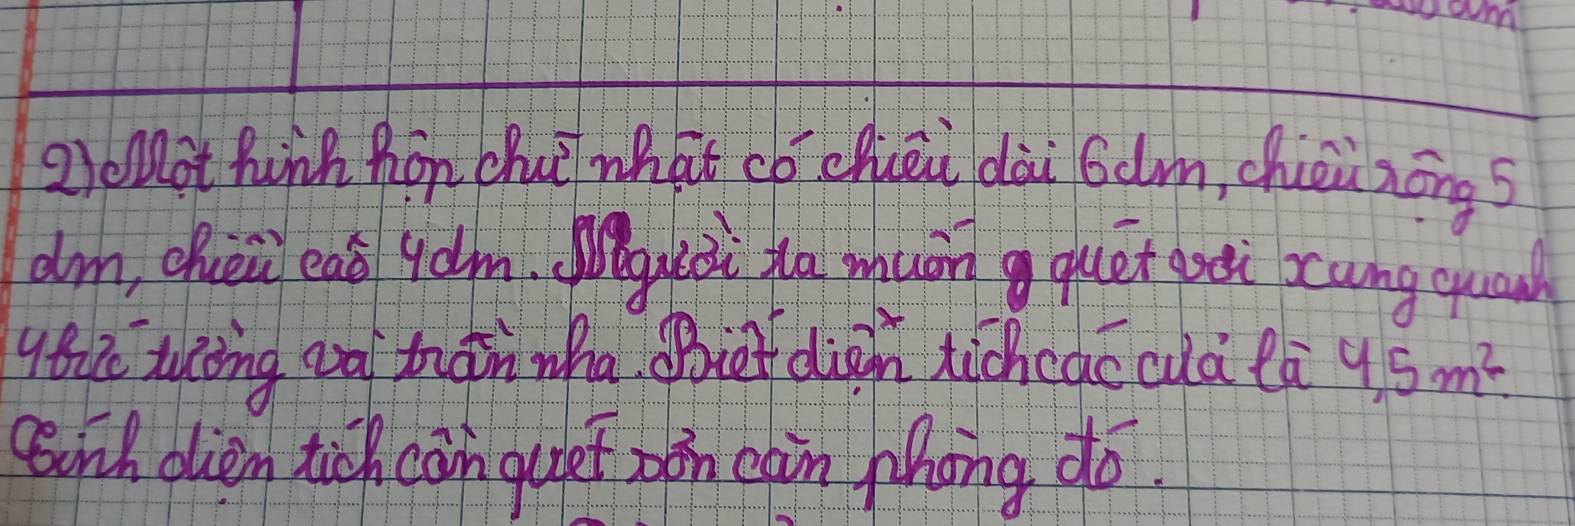 2) Một hình hộp chữ nhật có chiều dài 6dm, chiều rộng 5
dm, chiều cao 4dm. Người ta muốn quét vôi xung quanh
4 bức tường và trần nhà. Biết diện tích các cửa là 4,5 m².
Tính diện tích cần quét sơn căn phòng đó.